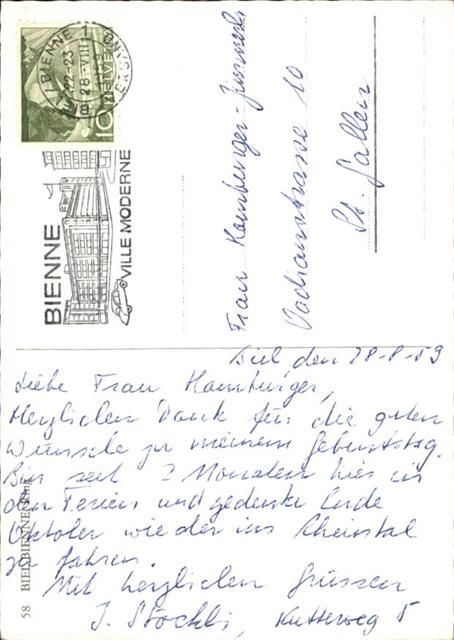 BIEL/BIENNE 1
22-23
28.-VIII
1959
10 HELVETIA
BIENNE
VILLE MODERNE
Frau Hamburger-
Vadianstrasse 10
St. Gallen
Biel den 28-8-59
Liebe Frau Hamburger,
Herzlichen Dank für die guten
Wünsche zu meinem Geburtstag.
Bin seit 2 Monaten hier in
den Ferien und gedenke Ende
Oktober wieder ins Rheintal
zu fahren.
Mit herzlichen Grüssen
J. Stöckli,
58 BIEL/BIENNE